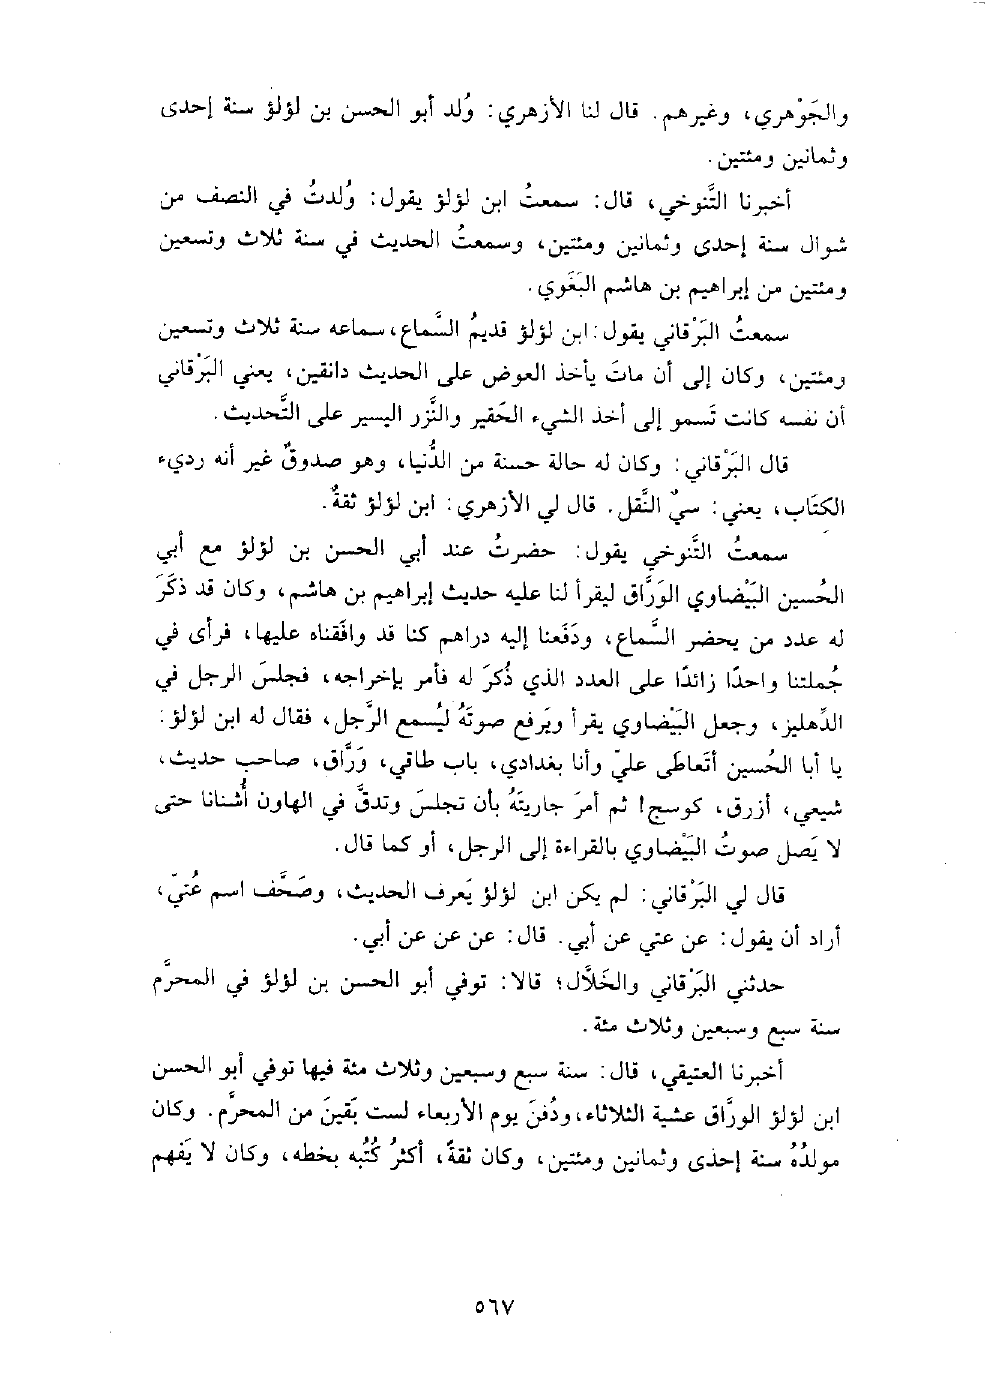 والجَوْهري، وغيرهم. قال لنا الأزهري: وُلد أبو الحسن بن لؤلؤ سنة إحدى
وثمانين ومئتين.
أخبرنا التَّنوخي، قال: سمعتُ ابن لؤلؤ يقول: وُلدتُ في النصف من
شوال سنة إحدى وثمانين ومئتين، وسمعتُ الحديث في سنة ثلاث وتسعين
ومئتين من إبراهيم بن هاشم البَغَوي.
سمعتُ البَرْقاني يقول: ابن لؤلؤ قديمُ السَّماع، سماعه سنة ثلاث وتسعين
ومئتين، وكان إلى أن ماتَ يأخذ العوض على الحديث دانقين، يعني البَرْقاني
أن نفسه كانت تَسمو إلى أخذ الشيء الحَقير والنَّزر اليسير على التَّحديث.
قال البَرْقاني: وكان له حالة حسنة من الدُّنيا، وهو صدوقٌ غير أنه رديء
الكتَاب، يعني: سيّ النَّقل. قال لي الأزهري: ابن لؤلؤ ثقةٌ.
سمعتُ التَّنوخي يقول: حضرتُ عند أبي الحسن بن لؤلؤ مع أبي
الحُسين البَيْضاوي الوَرَّاق ليقرأ لنا عليه حديث إبراهيم بن هاشم، وكان قد ذكَرَ
له عدد من يحضر السَّماع، ودَفَعنا إليه دراهم كنا قد وافَقناه عليها، فرأى في
جُملتنا واحدًا زائدًا على العدد الذي ذُكرَ له فأمر بإخراجه، فجلسَ الرجل في
الدِّهليز، وجعل البَيْضاوي يقرأ ويَرفع صوتَهُ ليُسمع الرَّجل، فقال له ابن لؤلؤ:
يا أبا الحُسين أتَعاطَى عليّ وأنا بغدادي، باب طاقي، وَرَّاق، صاحب حديث،
شيعي، أزرق، كوسج! ثم أمرَ جاريتَهُ بأن تجلسَ وتدقَّ في الهاون أُشنانا حتى
لا يَصل صوتُ البَيْضاوي بالقراءة إلى الرجل، أو كما قال.
قال لي البَرْقاني: لم يكن ابن لؤلؤ يَعرف الحديث، وصَحَّف اسم عُتيّ،
أراد أن يقول: عن عتي عن أبي. قال: عن عن عن أبي.
حدثني البَرْقاني والخَلَّال؛ قالا: توفي أبو الحسن بن لؤلؤ في المحرَّم
سنة سبع وسبعين وثلاث مئة.
أخبرنا العتيقي، قال: سنة سبع وسبعين وثلاث مئة فيها توفي أبو الحسن
ابن لؤلؤ الورَّاق عشية الثلاثاء، ودُفنَ يوم الأربعاء لست بَقينَ من المحرَّم. وكان
مولدُهُ سنة إحدى وثمانين ومئتين، وكان ثقةً، أكثرُ كُتُبه بخطه، وكان لا يَفهم
٥٦٧